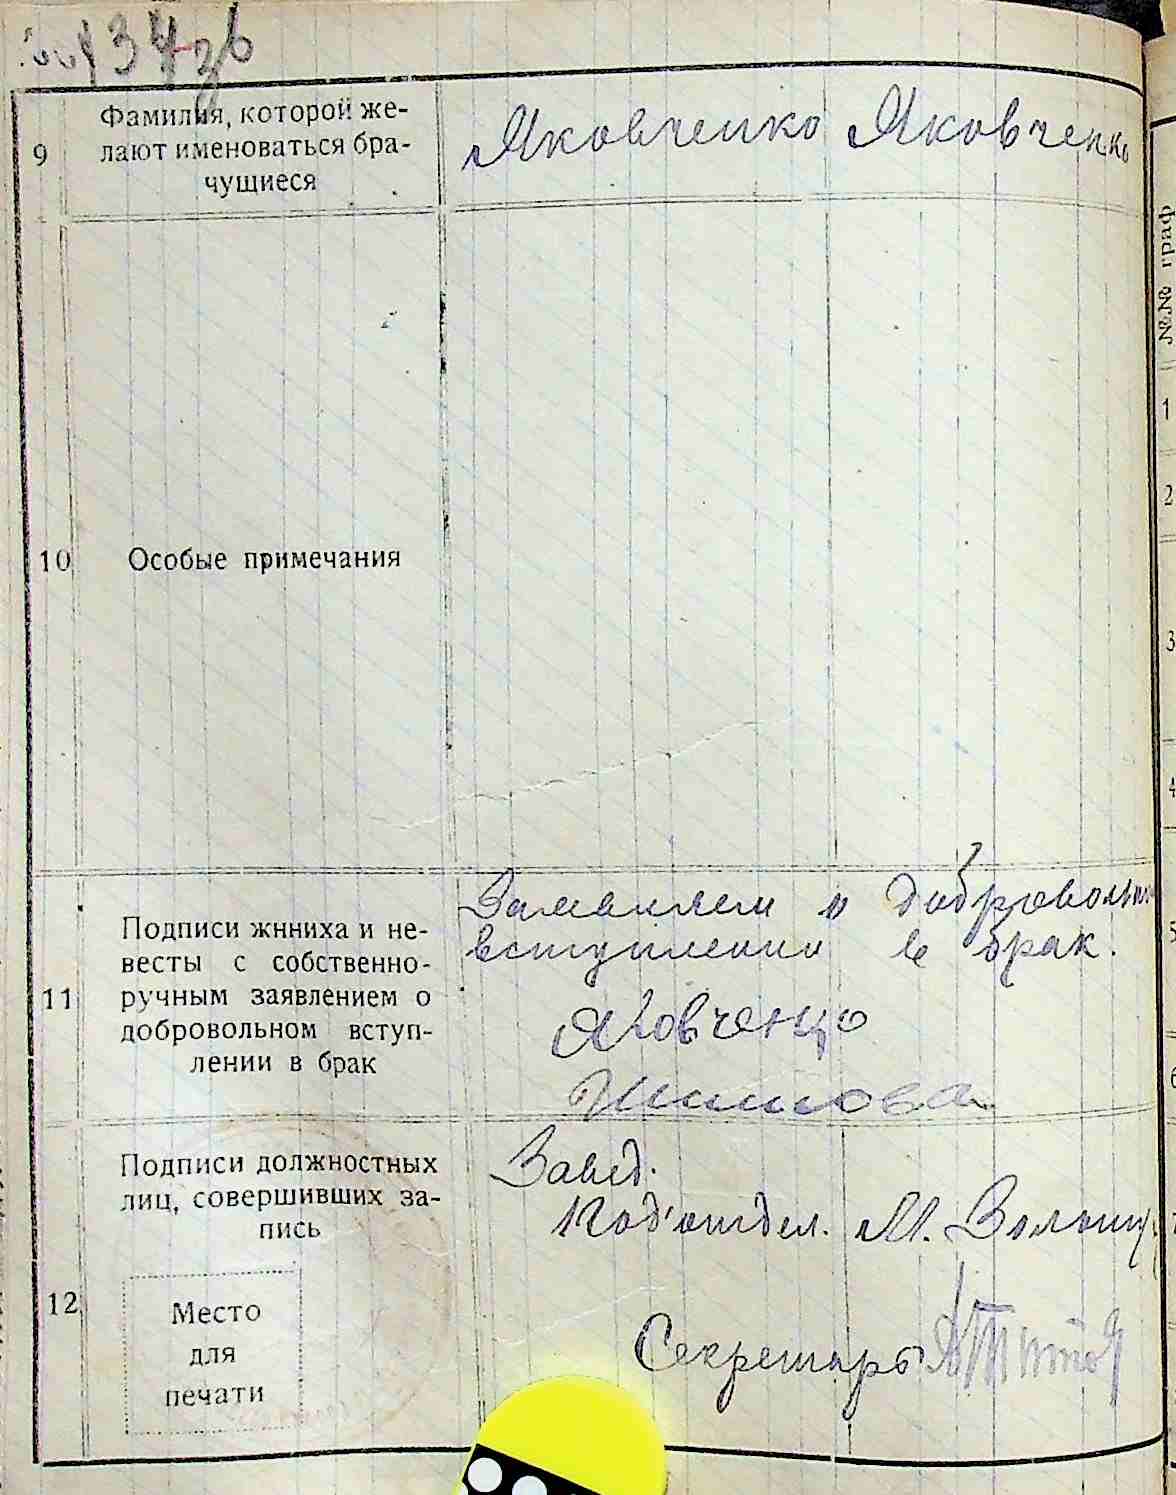 34
Фамилия, которой же-
9 лают именоваться бра-
чущиеся
Яковченко Яковченко
10 Особые примечания
Подписи жнниха и не-
весты с собственно-
11 ручным заявлением о
добровольном вступ-
лении в брак
Заявляем о доброволь
вступлении в брак.
Яковченко
Подписи должностных
лиц, совершивших за-
пись
12 Место
для
печати
Завед.
Под'отдел. М.
Секретарь
№№ граф
1
2
3
4
5
6
7